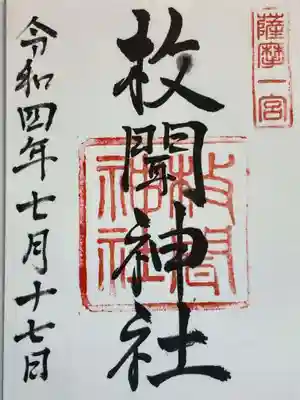 薩摩一宮
枚聞神社
枚聞
神社
令和四年七月十七日